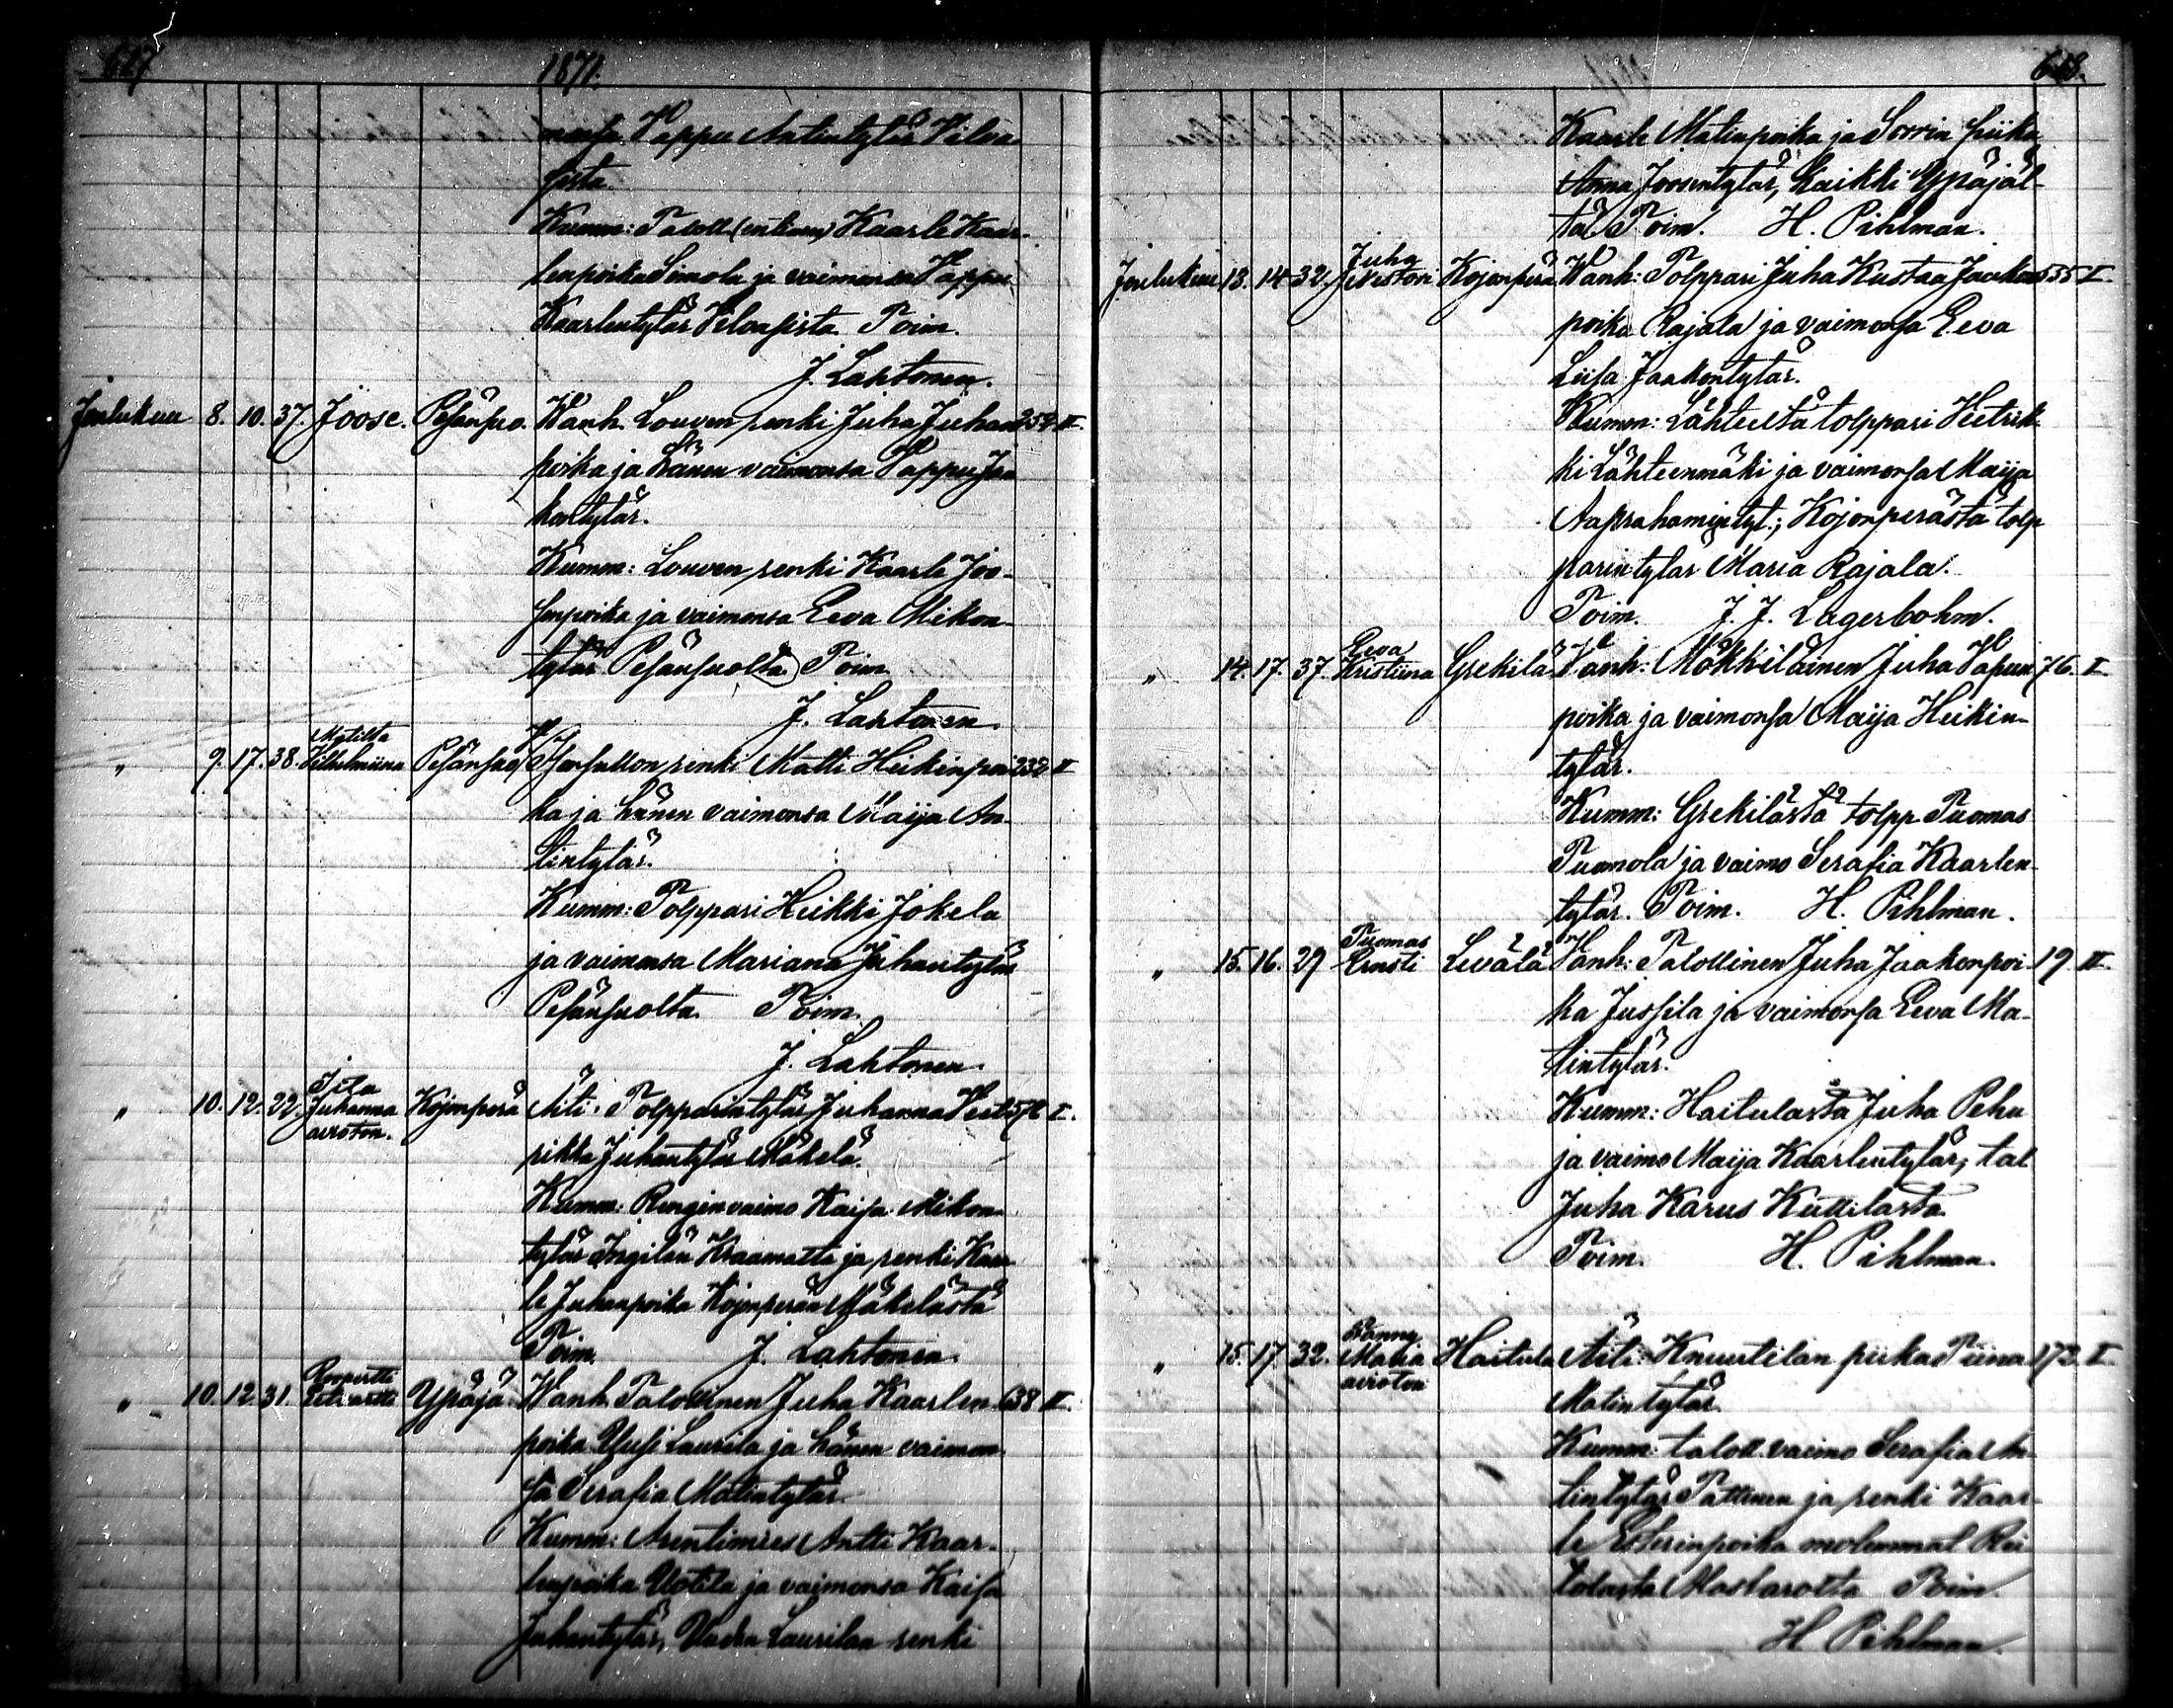 617
1871.
monsa Vappu Antintytär Vilva-
sista.
Kumm: Taloll (entinen) Kaarle Kaar-
lenpoika Simola ja vaimonsa Vappu
Kaarlentytär Vilvasista. Toim.
J. Lahtonen.
Joulukuu 8. 10. 37. Joose. Pesänsuo. Wanh. Louven renki Juha Juhan 252 II.
poika ja hänen vaimonsa Vappu Jaa
kontytär.
Kumm: Louven renki Kaarle Joo-
senpoika ja vaimonsa Eeva Mikon-
tytär Pesänsuolta. Toim.
J. Lahtonen.
Matilta
" 9. 17. 38. Vilhelmiina Pesänsuo renki Matti Heikinpoi 232 II
ka ja hänen vaimonsa Maija An-
tintytär.
Kumm: Tolppari Heikki Jokela
ja vaimonsa Mariana Juhantytär
Pesänsuolta. Toim.
J. Lahtonen.
Iita
" 10. 12. 22. Juhanna Kojonperä Äiti: Tolpparintytär Juhanna Heet I.
avioton.
rikka Juhantytär Mäkelä.
Kumm: Rengin vaimo Kaisa Mikon-
tytär Ingilän Kraamatti ja renki Kaar
le Juhanpoika Kojonperän Mäkelästä
Toim. J. Lahtonen.
Roopertti
" 10. 12. 31. Ypäjä. Wanh. Talollinen Juha Kaarlen 638 II.
poika Yusi Laurila ja hänen vaimon-
sa Serafia Matintytär.
Kumm: Arentimies Antti Kaar-
lenpoika Uotila ja vaimonsa Kaisa
Juhantytär, Laurilan renki
618.
Kaarle Matinpoika ja Sorrin piika
Anna Joosentytär, kaikki Ypäjäl-
tä. Toim. H. Pihlman.
Juha
Joulukuu 13. 14. 32. Nestori Kojonperä Wanh: Tolppari Juha Kustaa Jaakon 535 I.
poika Rajala ja vaimonsa Eeva
Liisa Jaakontytär.
Kumm: Lähteeltä tolppari Heetrik-
ki Lähteenmäki ja vaimonsa Maija
Aaprahamintyt.; Kojonperästä tolp
parin tytär Maria Rajala.
Toim. J. J. Lagerbohm.
Eeva
" 14. 17. 37. Kristiina Grekilä Vanh: Mökkiläinen Juha Vapun 76. I.
poika ja vaimonsa Maija Heikin-
tytär.
Kumm: Grekilästä tolpp Tuomas
Tuomola ja vaimo Serafia Kaarlen-
tytär. Toim. H. Pihlman.
Tuomas
" 15. 16. 29 Ernsti Levälä Vanh: Talollinen Juha Jaakonpoi 19. II.
ka Jussila ja vaimonsa Eeva Ma-
tintytär.
Kumm: Haitulasta Juha Pehu
ja vaimo Maija Kaarlentytär, tal
Juha Karus Kuttilasta
Toim. H. Pihlman.
Fanny
" 15. 17. 32. Maria Haitula Äiti: Knuutilan piika Tiina 172. I.
avioton
Matintytär.
Kumm: taloll. vaimo Serafia An-
tintytär Pattinen ja renki Kaar-
le molemmat
Toim.
H. Pihlman.